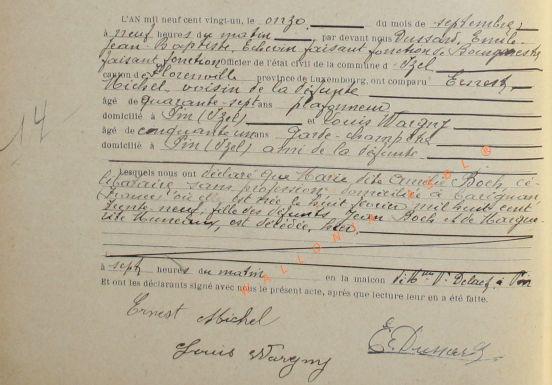 L'AN mil neuf cent vingt-un, le onze du mois de septembre
à neuf heures du matin, par devant nous Dussard, Emile
Jean-Baptiste, Echevin faisant fonction de Bourgmestre
faisant fonction Officier de l'état civil de la commune d'Izel
canton de Florenville province de Luxembourg, ont comparu Ernest
Michel, voisin de la défunte
âgé de quarante-sept ans plafonneur
domicilié à Pin (Izel) et Louis Wargny
âgé de cinquante un ans Garde-champêtre
domicilié à Pin (Izel) ami de la défunte
14
Lesquels nous ont déclaré que Marie dite Boch, cé-
libataire sans profession, domiciliée à Carignan
(France) où elle est née le huit février mil huit cent
trente-neuf, fille des défunts Jean Boch et de Margue-
rite est décédée, hier
à sept heures du matin en la maison de à Pin
Et ont les déclarants signé avec nous le présent acte, après que lecture leur en a été faite.
Ernest Michel
Louis Wargny
E. Dussard